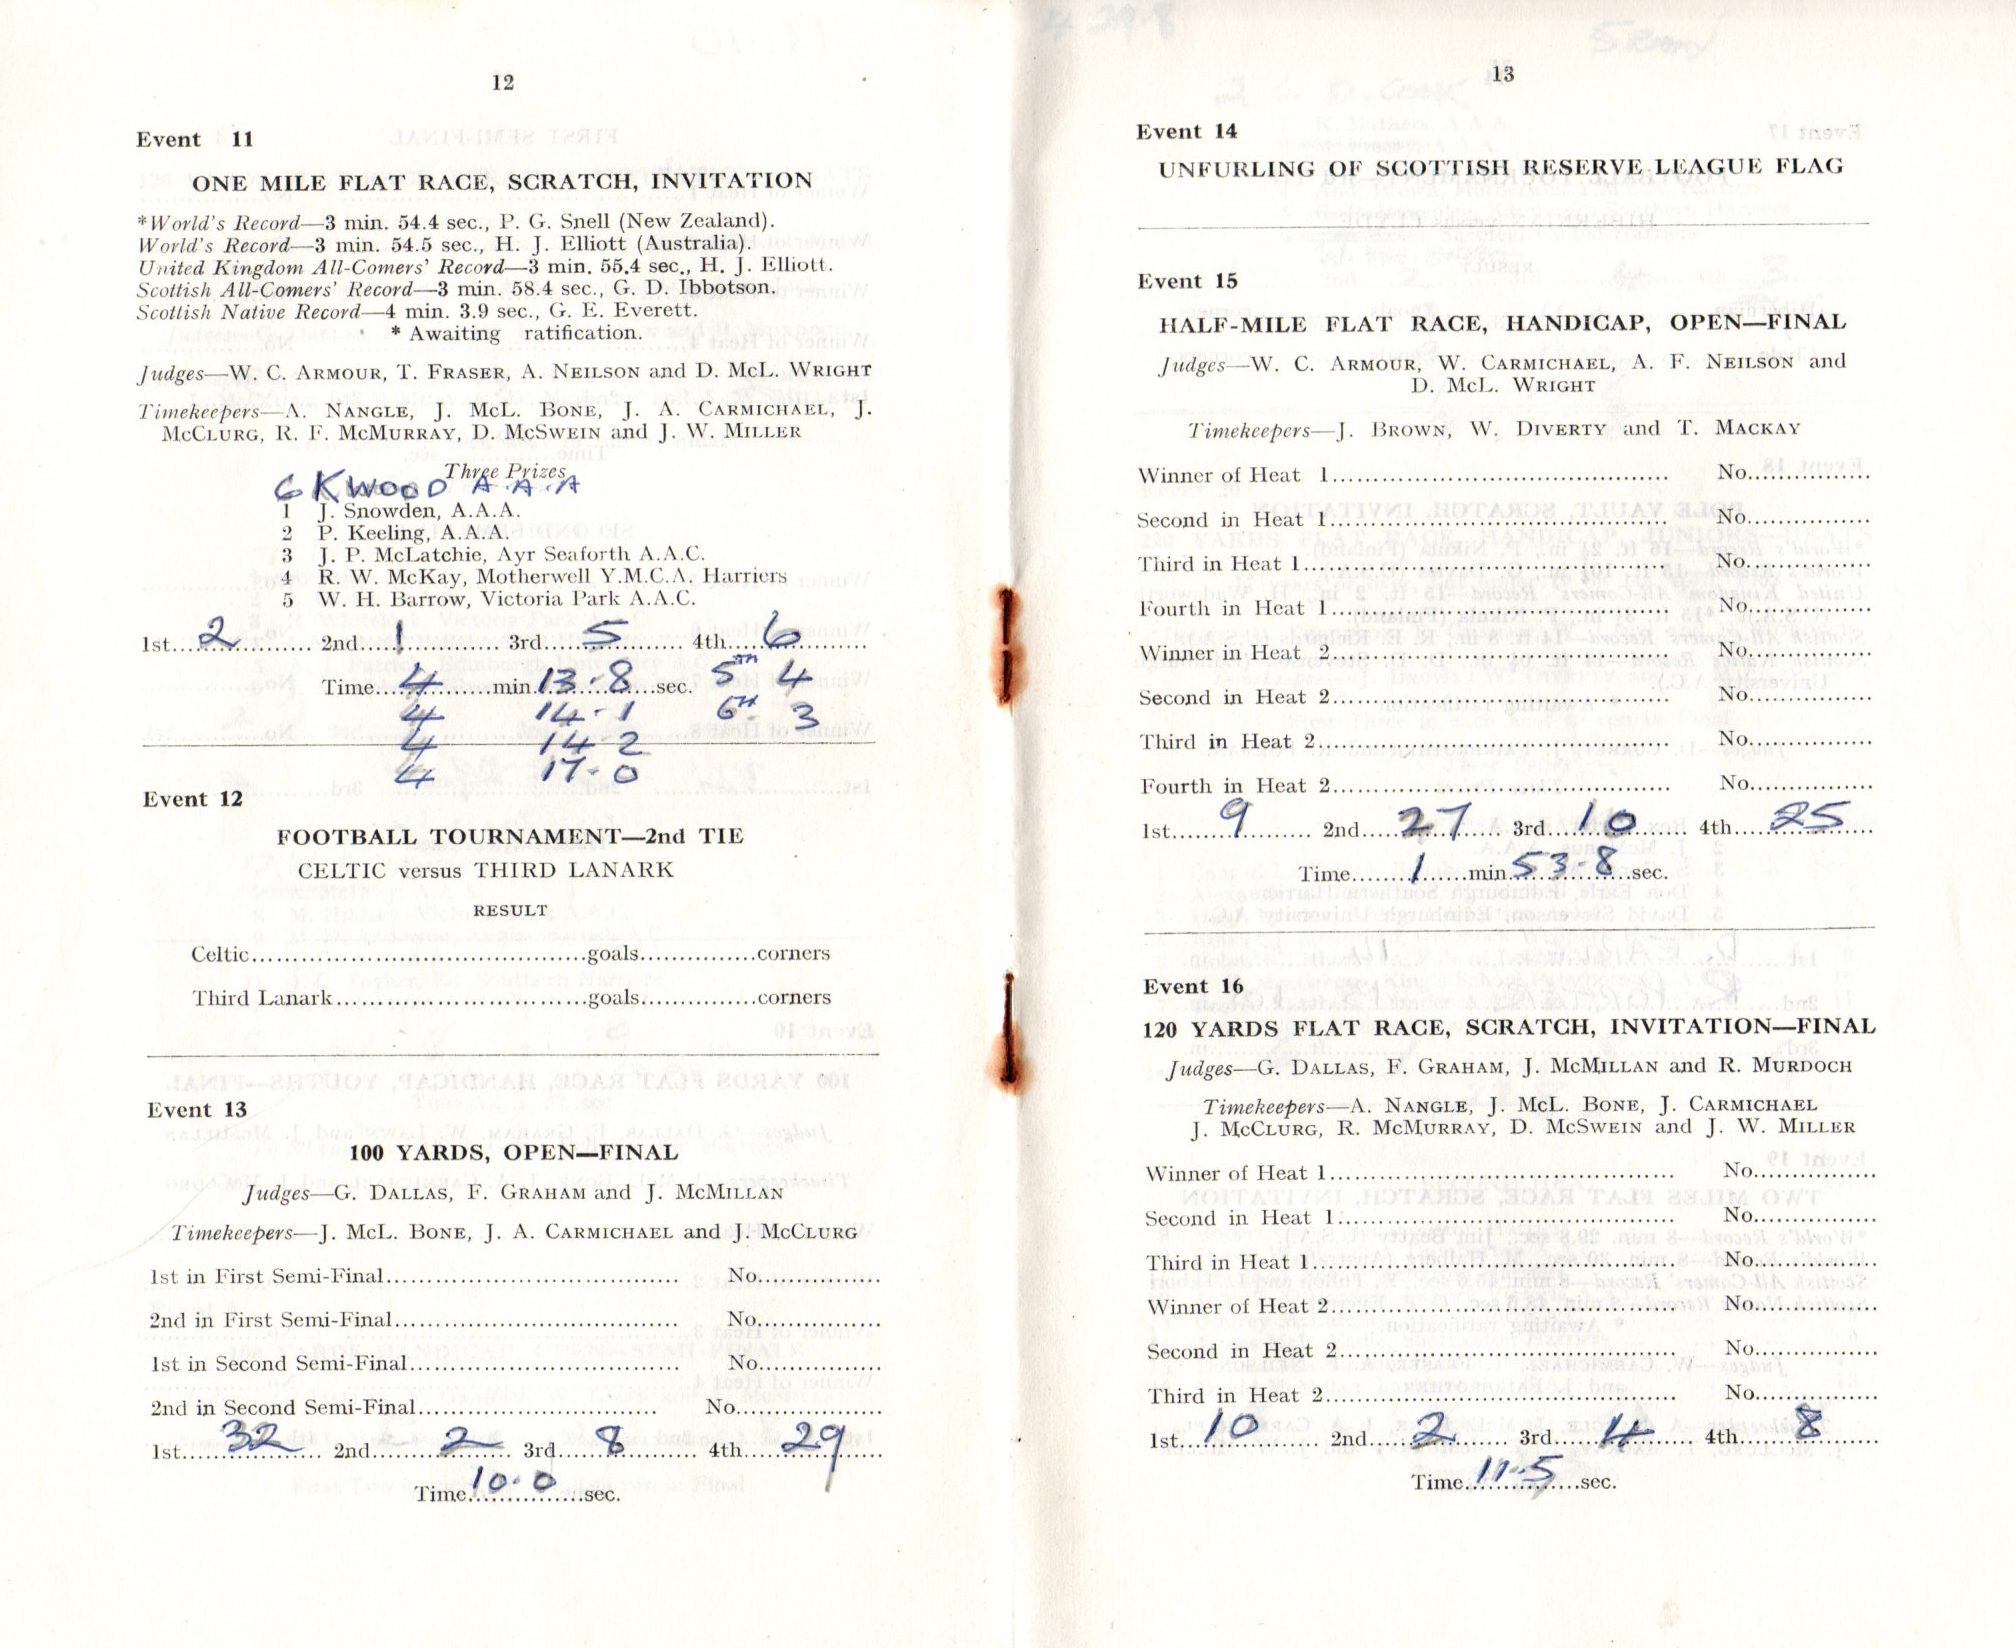 12
Event 11
ONE MILE FLAT RACE, SCRATCH, INVITATION
*World's Record—3 min. 54.4 sec., P. G. Snell (New Zealand).
World's Record—3 min. 54.5 sec., H. J. Elliott (Australia).
United Kingdom All-Comers' Record—3 min. 55.4 sec., H. J. Elliott.
Scottish All-Comers' Record—3 min. 58.4 sec., G. D. Ibbotson.
Scottish Native Record—4 min. 3.9 sec., G. E. Everett.
* Awaiting ratification.
Judges—W. C. ARMOUR, T. FRASER, A. NEILSON and D. McL. WRIGHT
Timekeepers—A. NANGLE, J. McL. BONE, J. A. CARMICHAEL, J.
McCLURG, R. F. McMURRAY, D. McSWEIN and J. W. MILLER
Three Prizes
6 K WOOD A.A.A
1 J. Snowden, A.A.A.
2 P. Keeling, A.A.A.
3 J. P. McLatchie, Ayr Seaforth A.A.C.
4 R. W. McKay, Motherwell Y.M.C.A. Harriers
5 W. H. Barrow, Victoria Park A.A.C.
1st....2.... 2nd....1.... 3rd....5.... 4th....6....
Time....4....min.13.8....sec. 5TH 4
4 14.1 6TH 3
4 14.2
4 17.0
Event 12
FOOTBALL TOURNAMENT—2nd TIE
CELTIC versus THIRD LANARK
RESULT
Celtic........................................goals...............corners
Third Lanark..............................goals...............corners
Event 13
100 YARDS, OPEN—FINAL
Judges—G. DALLAS, F. GRAHAM and J. McMILLAN
Timekeepers—J. McL. BONE, J. A. CARMICHAEL and J. McCLURG
1st in First Semi-Final................................... No................
2nd in First Semi-Final.................................. No................
1st in Second Semi-Final................................ No................
2nd in Second Semi-Final............................. No..................
1st....32.... 2nd....2.... 3rd....8.... 4th....29....
Time....10.0....sec.
13
Event 14
UNFURLING OF SCOTTISH RESERVE LEAGUE FLAG
Event 15
HALF-MILE FLAT RACE, HANDICAP, OPEN—FINAL
Judges—W. C. ARMOUR, W. CARMICHAEL, A. F. NEILSON and
D. McL. WRIGHT
Timekeepers—J. BROWN, W. DIVERTY and T. MACKAY
Winner of Heat 1........................................ No................
Second in Heat 1........................................ No................
Third in Heat 1........................................... No................
Fourth in Heat 1........................................ No................
Winner in Heat 2........................................ No................
Second in Heat 2........................................ No................
Third in Heat 2.......................................... No................
Fourth in Heat 2........................................ No................
1st....9.... 2nd....27.... 3rd....10.... 4th....25....
Time....1....min....53.8....sec.
Event 16
120 YARDS FLAT RACE, SCRATCH, INVITATION—FINAL
Judges—G. DALLAS, F. GRAHAM, J. McMILLAN and R. MURDOCH
Timekeepers—A. NANGLE, J. McL. BONE, J. CARMICHAEL
J. McCLURG, R. McMURRAY, D. McSWEIN and J. W. MILLER
Winner of Heat 1........................................ No................
Second in Heat 1........................................ No................
Third in Heat 1........................................... No................
Winner of Heat 2........................................ No................
Second in Heat 2........................................ No................
Third in Heat 2.......................................... No................
1st....10.... 2nd....2.... 3rd....4.... 4th....8....
Time....11.5....sec.